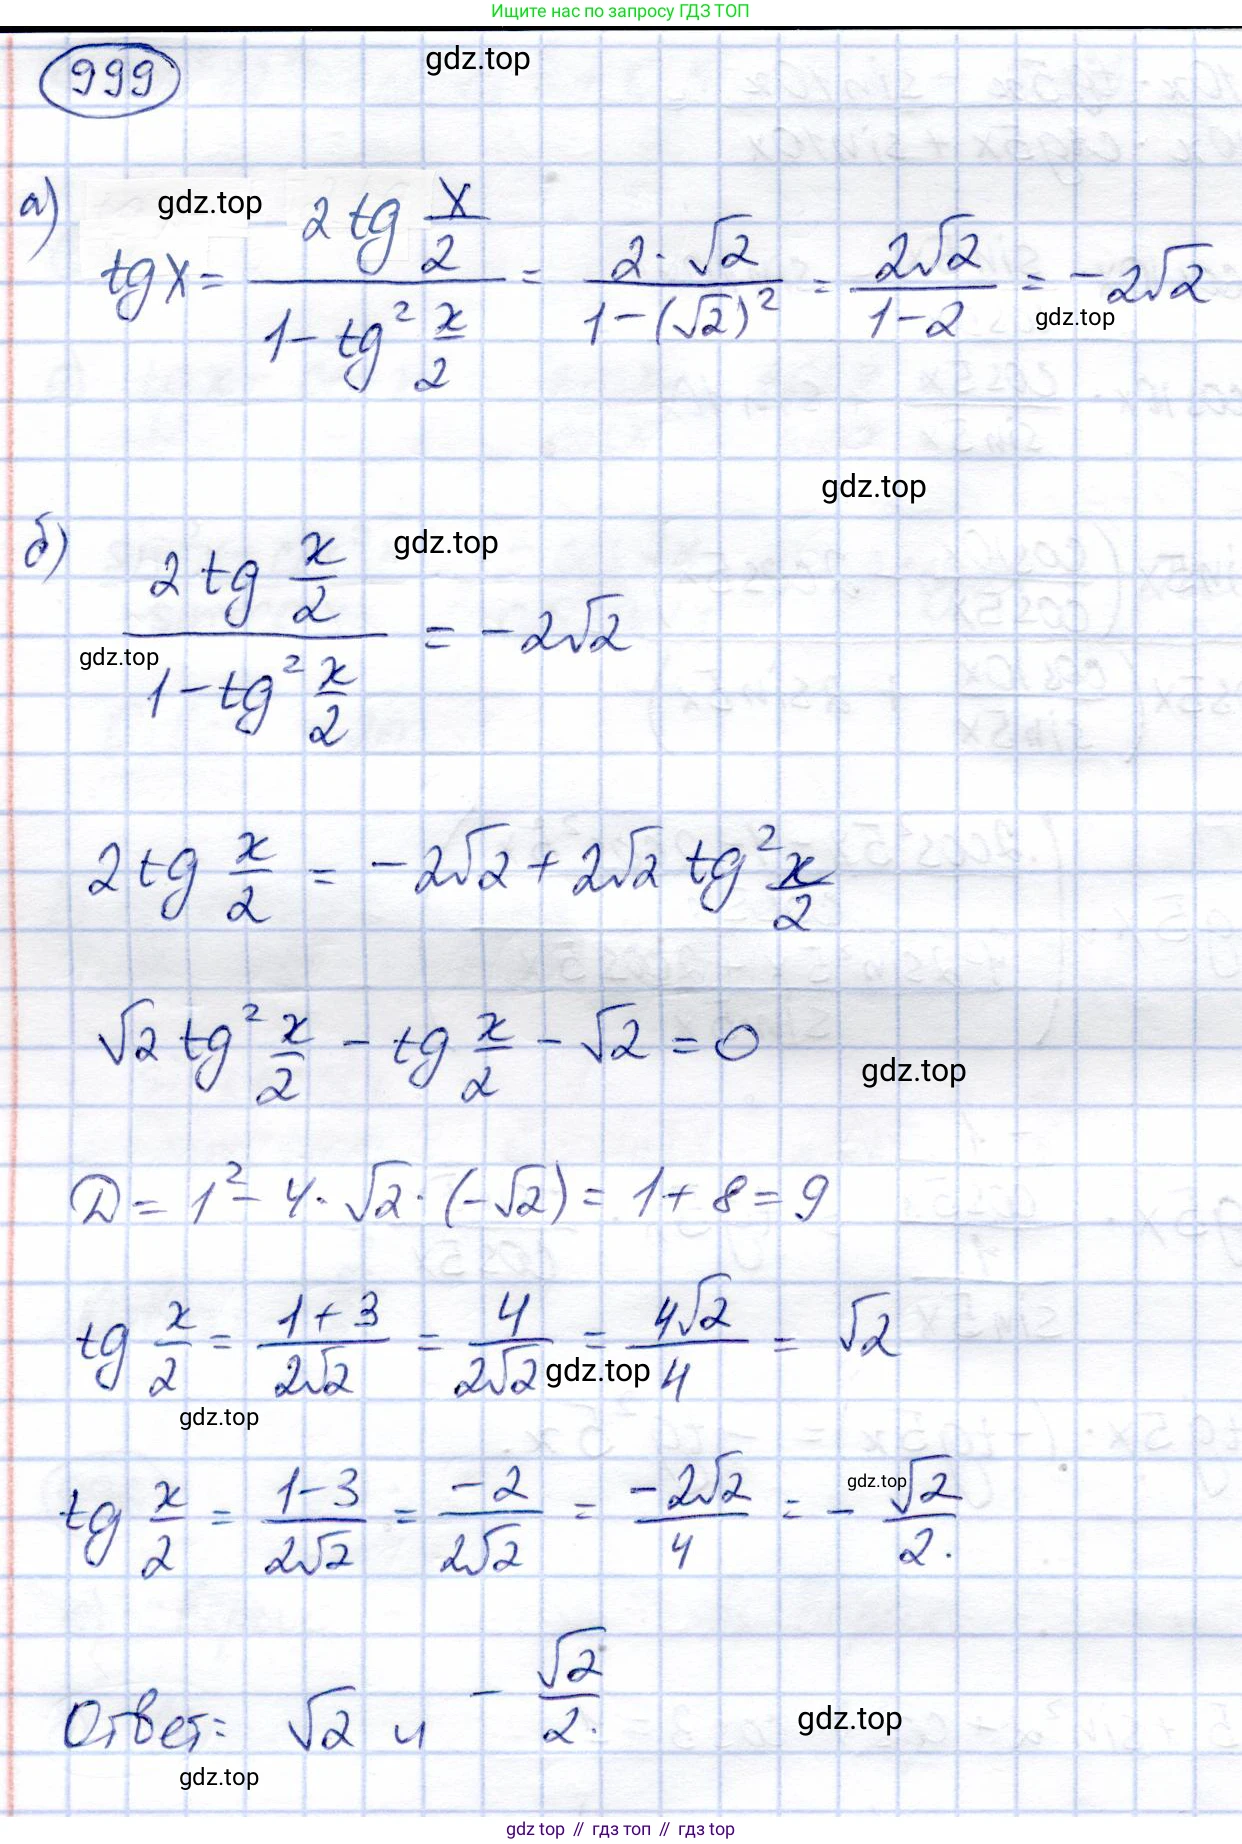 Ищите нас по запросу ГДЗ ТОП
999
gdz.top
а) tg x = (2 tg x/2) / (1 - tg² x/2) = (2·√2) / (1-(√2)²) = 2√2 / (1-2) = -2√2
gdz.top
gdz.top
gdz.top
б) (2 tg x/2) / (1 - tg² x/2) = -2√2
gdz.top
gdz.top
2 tg x/2 = -2√2 + 2√2 tg² x/2
√2 tg² x/2 - tg x/2 - √2 = 0
gdz.top
D = 1² - 4·√2·(-√2) = 1 + 8 = 9
tg x/2 = (1+3) / (2√2) = 4 / (2√2) = 4√2 / 4 = √2
gdz.top
gdz.top
tg x/2 = (1-3) / (2√2) = -2 / (2√2) = -2√2 / 4 = - √2/2.
gdz.top
Ответ: √2 и - √2/2.
gdz.top
gdz.top
gdz top // гдз топ // gdz top